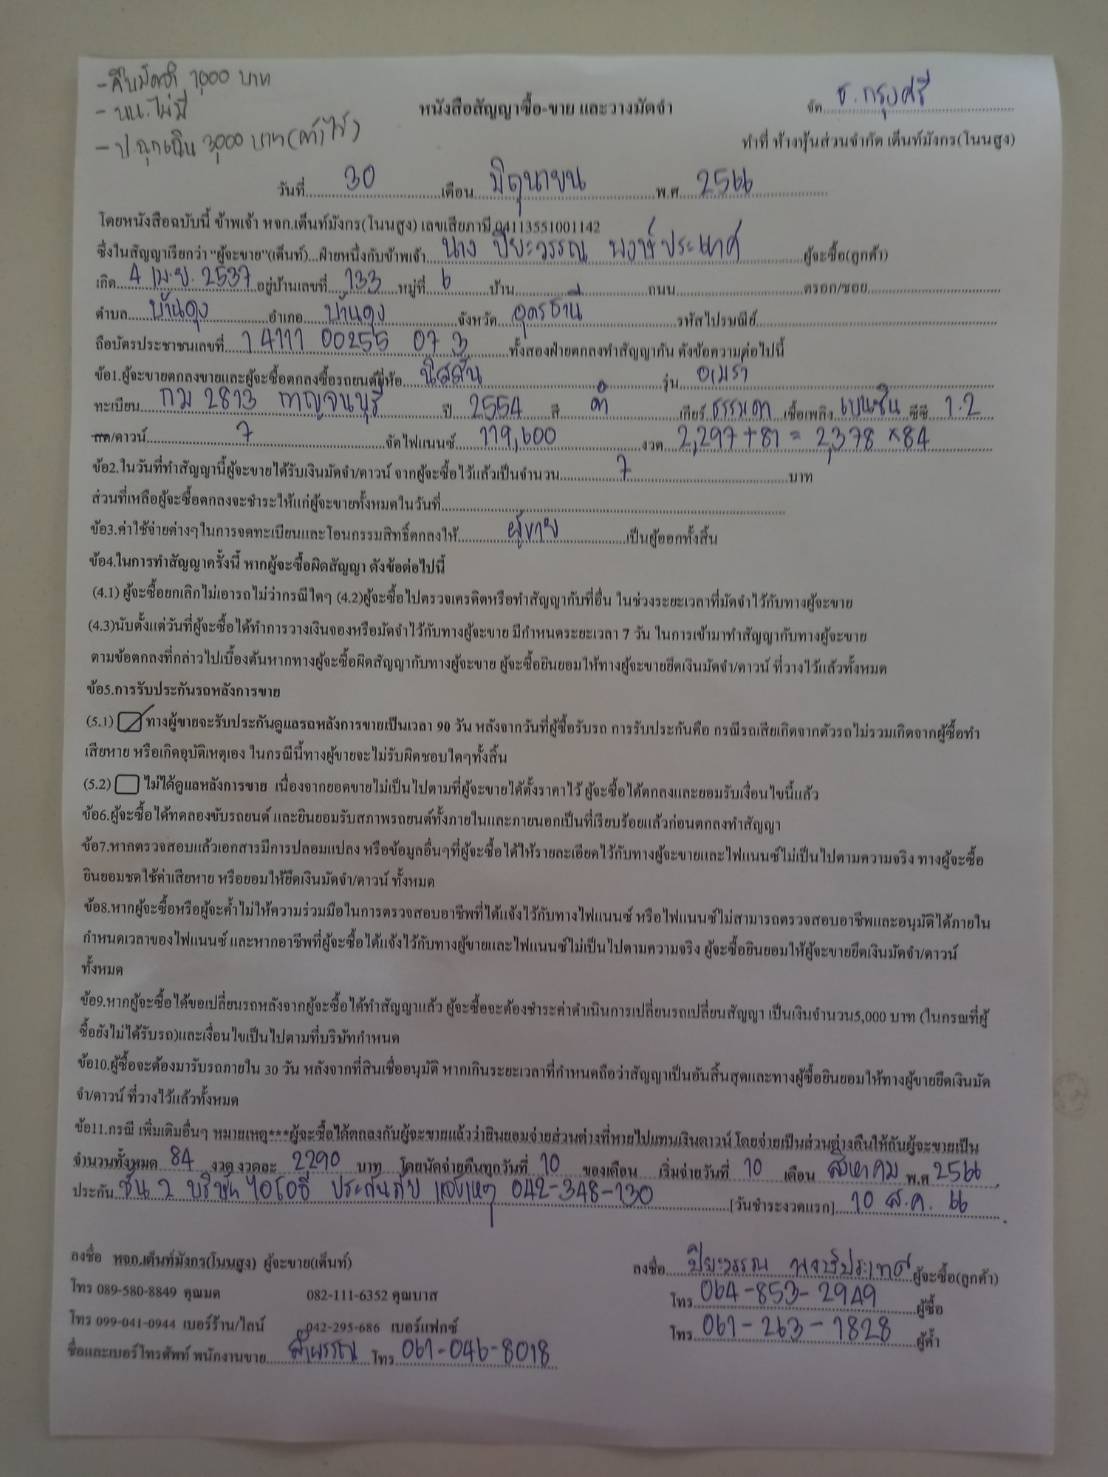 - คืนมัดจำ 1,000 บาท
- นน.ไม่มี
- ป.ฉุกเฉิน 3,000 บาท (ค่าไร้)
หนังสือสัญญาซื้อ-ขาย และวางมัดจำ
จัด ธ.กรุงศรี
ทำที่ ห้างหุ้นส่วนจำกัด เต็นท์มังกร(โนนสูง)
วันที่ 30 เดือน มิถุนายน พ.ศ 2566
โดยหนังสือฉบับนี้ ข้าพเจ้า หจก.เต็นท์มังกร(โนนสูง) เลขเสียภาษี 04113551001142
ซึ่งในสัญญาเรียกว่า "ผู้จะขาย"(เต็นท์)...ฝ่ายหนึ่งกับข้าพเจ้า นาง ปิยะวรรณ พงษ์ประเทศ ผู้จะซื้อ(ลูกค้า)
เกิด 4 เม.ย. 2537 อยู่บ้านเลขที่ 133 หมู่ที่ 6 บ้าน ถนน ตรอก/ซอย
ตำบล บ้านดุง อำเภอ บ้านดุง จังหวัด อุดรธานี รหัสไปรษณีย์
ถือบัตรประชาชนเลขที่ 1 4111 00255 07 3 ทั้งสองฝ่ายตกลงทำสัญญากัน ดังข้อความต่อไปนี้
ข้อ1.ผู้จะขายตกลงขายและผู้จะซื้อตกลงซื้อรถยนต์ยี่ห้อ นิสสัน รุ่น อเมร่า
ทะเบียน กม 2813 กาญจนบุรี ปี 2554 สี ดำ เกียร์ ธรรมดา เชื้อเพลิง เบนซิน ซีซี 1.2
สด/ดาวน์ 7 จัดไฟแนนซ์ 119,600 งวด 2,297+81 = 2,378 ×84
ข้อ2.ในวันที่ทำสัญญานี้ผู้จะขายได้รับเงินมัดจำ/ดาวน์ จากผู้จะซื้อไว้แล้วเป็นจำนวน 7 บาท
ส่วนที่เหลือผู้จะซื้อตกลงจะชำระให้แก่ผู้จะขายทั้งหมดในวันที่
ข้อ3.ค่าใช้จ่ายต่างๆในการจดทะเบียนและโอนกรรมสิทธิ์ตกลงให้ ผู้ขาย เป็นผู้ออกทั้งสิ้น
ข้อ4.ในการทำสัญญาครั้งนี้ หากผู้จะซื้อผิดสัญญา ดังข้อต่อไปนี้
(4.1) ผู้จะซื้อยกเลิกไม่เอารถไม่ว่ากรณีใดๆ (4.2)ผู้จะซื้อไปตรวจเครดิตหรือทำสัญญากับที่อื่น ในช่วงระยะเวลาที่มัดจำไว้กับทางผู้จะขาย
(4.3)นับตั้งแต่วันที่ผู้จะซื้อได้ทำการวางเงินจองหรือมัดจำไว้กับทางผู้จะขาย มีกำหนดระยะเวลา 7 วัน ในการเข้ามาทำสัญญากับทางผู้จะขาย
ตามข้อตกลงที่กล่าวไปเบื้องต้นหากทางผู้จะซื้อผิดสัญญากับทางผู้จะขาย ผู้จะซื้อยินยอมให้ทางผู้จะขายยึดเงินมัดจำ/ดาวน์ ที่วางไว้แล้วทั้งหมด
ข้อ5.การรับประกันรถหลังการขาย
(5.1) ทางผู้ขายจะรับประกันดูแลรถหลังการขายเป็นเวลา 90 วัน หลังจากวันที่ผู้ซื้อรับรถ การรับประกันคือ กรณีรถเสียเกิดจากตัวรถไม่รวมเกิดจากผู้ซื้อทำ
เสียหาย หรือเกิดอุบัติเหตุเอง ในกรณีนี้ทางผู้ขายจะไม่รับผิดชอบใดๆทั้งสิ้น
(5.2) ไม่ได้ดูแลหลังการขาย เนื่องจากยอดขายไม่เป็นไปตามที่ผู้จะขายได้ตั้งราคาไว้ ผู้จะซื้อได้ตกลงและยอมรับเงื่อนไขนี้แล้ว
ข้อ6.ผู้จะซื้อได้ทดลองขับรถยนต์ และยินยอมรับสภาพรถยนต์ทั้งภายในและภายนอกเป็นที่เรียบร้อยแล้วก่อนตกลงทำสัญญา
ข้อ7.หากตรวจสอบแล้วเอกสารมีการปลอมแปลง หรือข้อมูลอื่นๆที่ผู้จะซื้อได้ให้รายละเอียดไว้กับทางผู้จะขายและไฟแนนซ์ไม่เป็นไปตามความจริง ทางผู้จะซื้อ
ยินยอมชดใช้ค่าเสียหาย หรือยอมให้ยึดเงินมัดจำ/ดาวน์ ทั้งหมด
ข้อ8.หากผู้จะซื้อหรือผู้จะค้ำไม่ให้ความร่วมมือในการตรวจสอบอาชีพที่ได้แจ้งไว้กับทางไฟแนนซ์ หรือไฟแนนซ์ไม่สามารถตรวจสอบอาชีพและอนุมัติได้ภายใน
กำหนดเวลาของไฟแนนซ์ และหากอาชีพที่ผู้จะซื้อได้แจ้งไว้กับทางผู้ขายและไฟแนนซ์ไม่เป็นไปตามความจริง ผู้จะซื้อยินยอมให้ผู้จะขายยึดเงินมัดจำ/ดาวน์
ทั้งหมด
ข้อ9.หากผู้จะซื้อได้ขอเปลี่ยนรถหลังจากผู้จะซื้อได้ทำสัญญาแล้ว ผู้จะซื้อจะต้องชำระค่าดำเนินการเปลี่ยนรถเปลี่ยนสัญญา เป็นเงินจำนวน5,000 บาท (ในกรณที่ผู้
ซื้อยังไม่ได้รับรถ)และเงื่อนไขเป็นไปตามที่บริษัทกำหนด
ข้อ10.ผู้ซื้อจะต้องมารับรถภายใน 30 วัน หลังจากที่สินเชื่ออนุมัติ หากเกินระยะเวลาที่กำหนดถือว่าสัญญาเป็นอันสิ้นสุดและทางผู้ซื้อยินยอมให้ทางผู้ขายยึดเงินมัด
จำ/ดาวน์ ที่วางไว้แล้วทั้งหมด
ข้อ11.กรณี เพิ่มเติมอื่นๆ หมายเหตุ***ผู้จะซื้อได้ตกลงกับผู้จะขายแล้วว่ายินยอมจ่ายส่วนต่างที่หายไปแทนเงินดาวน์ โดยจ่ายเป็นส่วนต่างคืนให้กับผู้จะขายเป็น
จำนวนทั้งหมด 84 งวด งวดละ 2290 บาท โดยนัดจ่ายคืนทุกวันที่ 10 ของเดือน เริ่มจ่ายวันที่ 10 เดือน สิงหาคม พ.ศ 2566
ประกัน ชั้น 2 บริษัท ไอโออิ ประกันภัย แจ้งเหตุ 042-348-130 [วันชำระงวดแรก] 10 ส.ค. 66
ลงชื่อ หจก.เต็นท์มังกร(โนนสูง) ผู้จะขาย(เต็นท์)
ลงชื่อ ปิยะวรรณ พงษ์ประเทศ ผู้จะซื้อ(ลูกค้า)
โทร 089-580-8849 คุณมด 082-111-6352 คุณบาส
โทร 064-853-2949 ผู้ซื้อ
โทร 099-041-0944 เบอร์ร้าน/ไลน์ 042-295-686 เบอร์แฟกซ์
โทร 061-263-1828 ผู้ค้ำ
ชื่อและเบอร์โทรศัพท์ พนักงานขาย ลำพรรณ โทร 061-046-8018